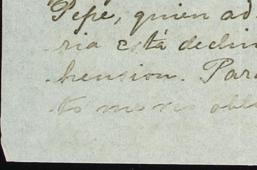 Pepe, quien ad
ria está declin
hension. Para
to menos obl